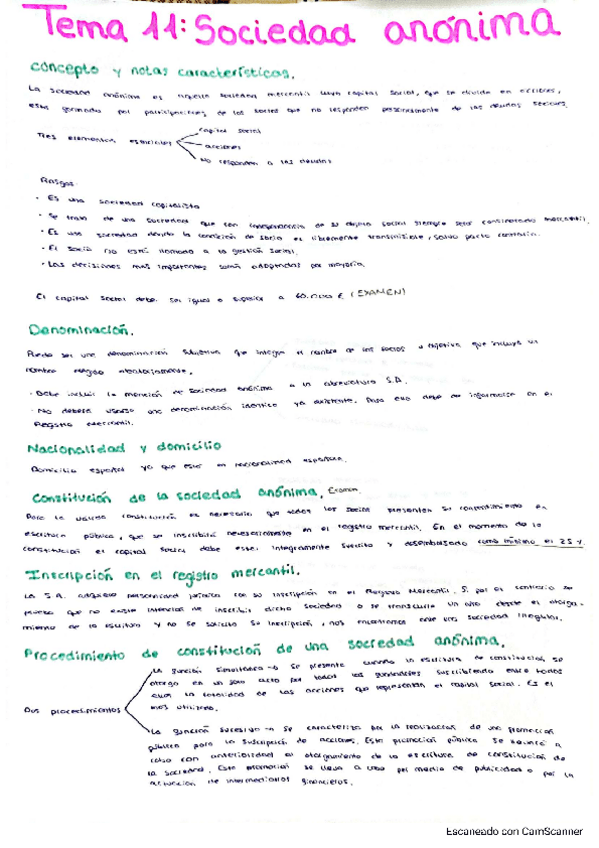 Tema 11: Sociedad anónima
concepto y notas características.
La sociedad anónima es aquella sociedad mercantil cuyo capital social, que se divide en acciones,
está formado por participaciones de los socios que no responden personalmente de las deudas sociales.
Tres elementos esenciales
capital social
acciones
No responden a las deudas
Rasgos
· Es una sociedad capitalista
· Se trata de una sociedad que con independencia de su objeto social siempre será considerada mercantil.
· Es una sociedad donde la condición de socio es libremente transmisible, salvo pacto contrario.
· El socio no está llamado a la gestión social.
· Las decisiones más importantes serán adoptadas por mayoría.
El capital social debe ser igual o superior a 60.000 € (EXAMEN)
Denominación.
Puede ser una denominación subjetiva que integre el nombre de los socios u objetiva que incluya un
nombre elegido
· Debe incluir la mención de sociedad anónima o la abreviatura S.A.
· No deberá usarse una denominación idéntica ya existente. Para ello debe de informarse en el
Registro Mercantil.
Nacionalidad y domicilio
Domicilio español ya que es nacionalidad española.
Constitución de la sociedad anónima. Examen
Para la válida constitución es necesario que todos los socios presenten su consentimiento en
escritura pública, que se inscribirá necesariamente en el registro mercantil. En el momento de la
constitución el capital social debe estar íntegramente suscrito y desembolsado como mínimo el 25%.
Inscripción en el registro mercantil.
La S.A. adquiere personalidad jurídica con su inscripción en el Registro Mercantil. Si por el contrario se
prueba que no existe intención de inscribir dicha sociedad o se transcurre un año desde el otorga-
miento de la escritura y no se solicita su inscripción, nos encontramos ante una sociedad irregular.
Procedimiento de constitución de una sociedad anónima.
Dos procedimientos
La función simultánea → se presenta cuando la escritura de constitución se
otorga en un solo acto por todos los fundadores suscribiendo entre todos
ellos la totalidad de las acciones que representan el capital social. Es el
más utilizado.
La función sucesiva → se caracteriza por la realización de una promoción
pública para la suscripción de acciones. Esta promoción pública se
cabo con anterioridad al otorgamiento de la escritura de constitución de
la sociedad. Esta promoción se lleva a cabo por medio de publicidad o por la
actuación de intermediarios financieros.
Escaneado con CamScanner